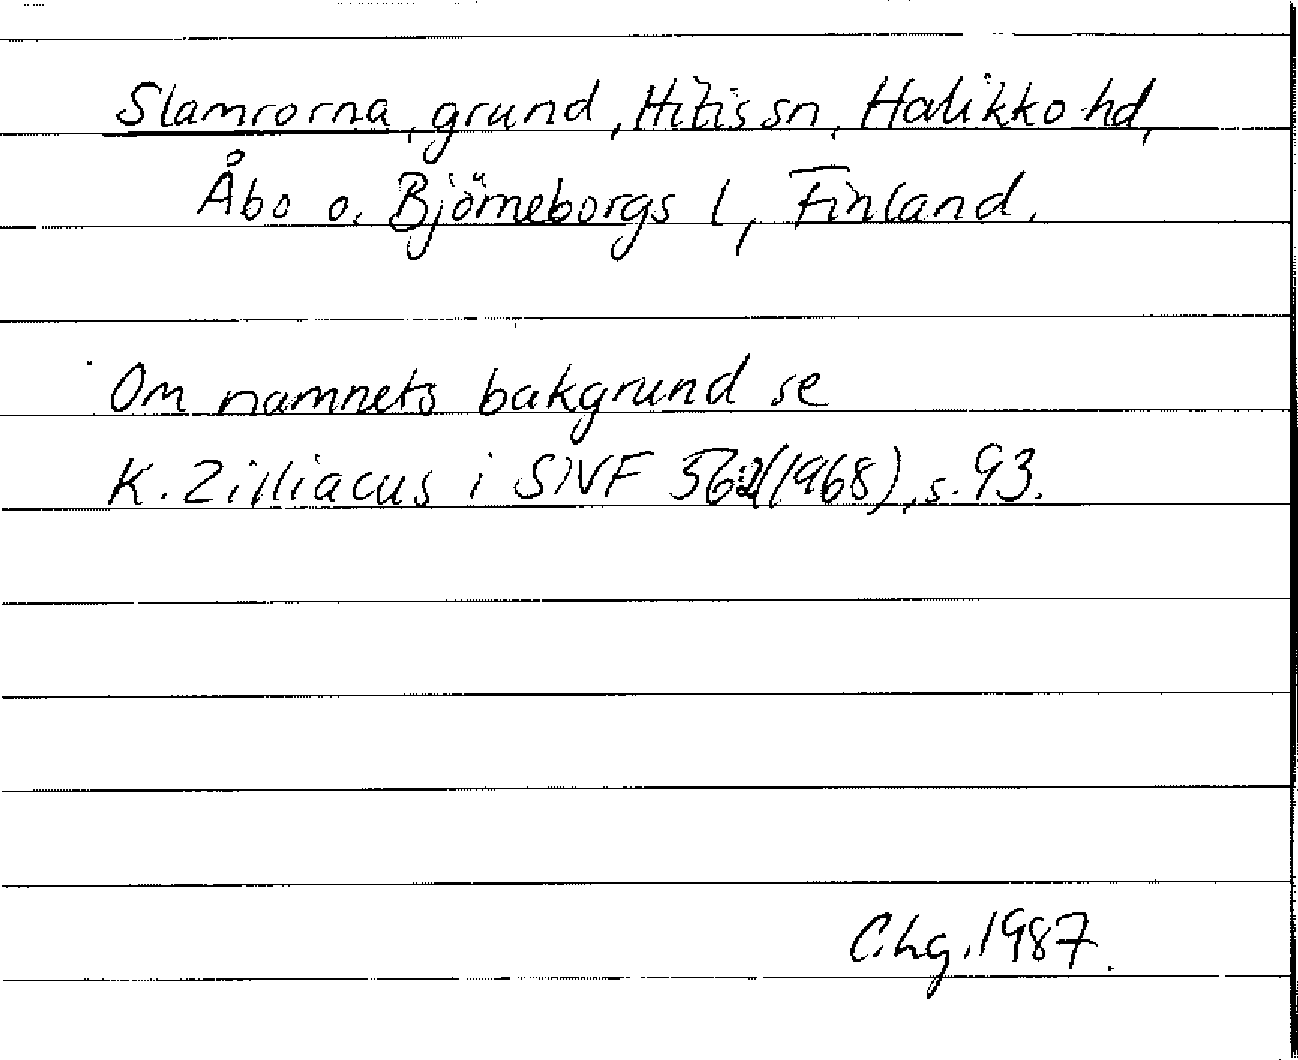 Slamrorna, grund, Hitis sn, Halikko hd,
Åbo o. Björneborgs l, Finland.
Om namnets bakgrund se
K. Zilliacus i SNF 56 (1968), s. 93.
C.hg. 1987.